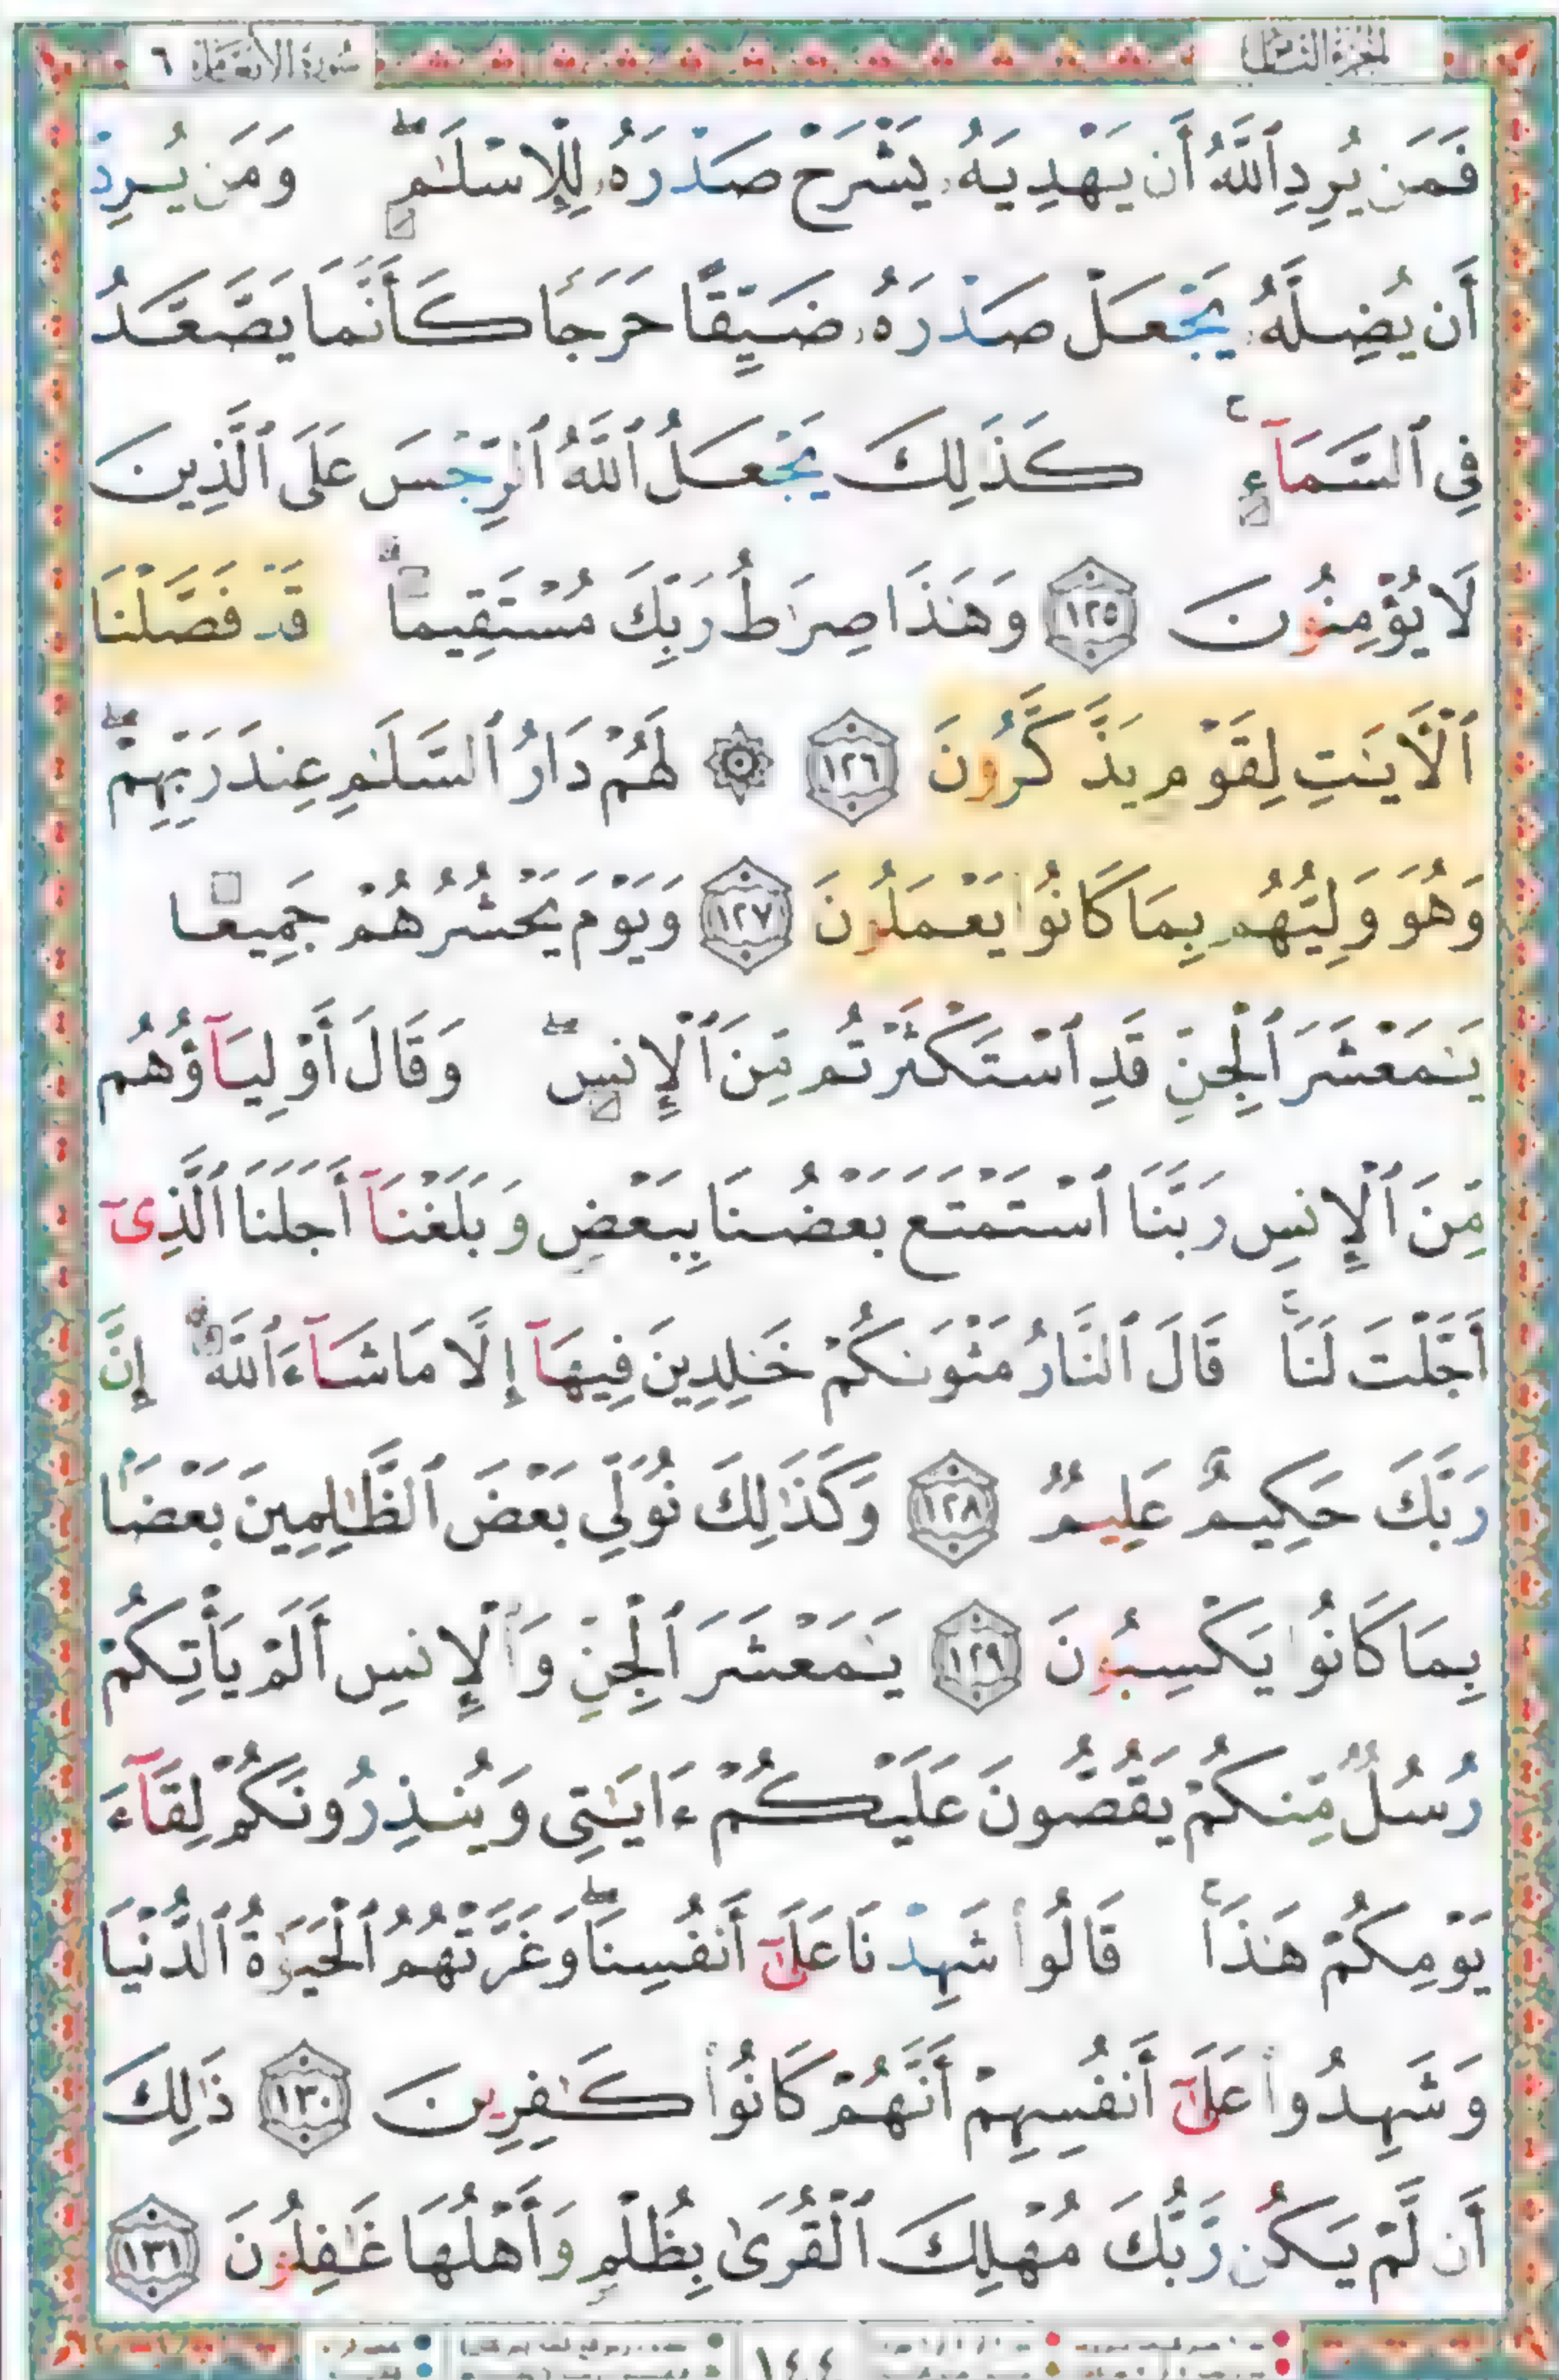 الجزء الثامن
سورة الأنعام ٦
فَمَن يُرِدِ ٱللَّهُ أَن يَهْدِيَهُۥ يَشْرَحْ صَدْرَهُۥ لِلْإِسْلَٰمِۖ وَمَن يُرِدْ
أَن يُضِلَّهُۥ يَجْعَلْ صَدْرَهُۥ ضَيِّقًا حَرَجًا كَأَنَّمَا يَصَّعَّدُ
فِى ٱلسَّمَآءِۚ كَذَٰلِكَ يَجْعَلُ ٱللَّهُ ٱلرِّجْسَ عَلَى ٱلَّذِينَ
لَا يُؤْمِنُونَ ١٢٥ وَهَٰذَا صِرَٰطُ رَبِّكَ مُسْتَقِيمًاۗ قَدْ فَصَّلْنَا
ٱلْأَيَٰتِ لِقَوْمٍ يَذَّكَّرُونَ ١٢٦ ۞ لَهُمْ دَارُ ٱلسَّلَٰمِ عِندَ رَبِّهِمْۖ
وَهُوَ وَلِيُّهُم بِمَا كَانُوا۟ يَعْمَلُونَ ١٢٧ وَيَوْمَ يَحْشُرُهُمْ جَمِيعًا
يَٰمَعْشَرَ ٱلْجِنِّ قَدِ ٱسْتَكْثَرْتُم مِّنَ ٱلْإِنسِۖ وَقَالَ أَوْلِيَآؤُهُم
مِّنَ ٱلْإِنسِ رَبَّنَا ٱسْتَمْتَعَ بَعْضُنَا بِبَعْضٍ وَبَلَغْنَآ أَجَلَنَا ٱلَّذِىٓ
أَجَّلْتَ لَنَاۚ قَالَ ٱلنَّارُ مَثْوَىٰكُمْ خَٰلِدِينَ فِيهَآ إِلَّا مَا شَآءَ ٱللَّهُۗ إِنَّ
رَبَّكَ حَكِيمٌ عَلِيمٌ ١٢٨ وَكَذَٰلِكَ نُوَلِّى بَعْضَ ٱلظَّٰلِمِينَ بَعْضًۢا
بِمَا كَانُوا۟ يَكْسِبُونَ ١٢٩ يَٰمَعْشَرَ ٱلْجِنِّ وَٱلْإِنسِ أَلَمْ يَأْتِكُمْ
رُسُلٌ مِّنكُمْ يَقُصُّونَ عَلَيْكُمْ ءَايَٰتِى وَيُنذِرُونَكُمْ لِقَآءَ
يَوْمِكُمْ هَٰذَاۚ قَالُوا۟ شَهِدْنَا عَلَىٰٓ أَنفُسِنَاۖ وَغَرَّتْهُمُ ٱلْحَيَوٰةُ ٱلدُّنْيَا
وَشَهِدُوا۟ عَلَىٰٓ أَنفُسِهِمْ أَنَّهُمْ كَانُوا۟ كَٰفِرِينَ ١٣٠ ذَٰلِكَ
أَن لَّمْ يَكُن رَّبُّكَ مُهْلِكَ ٱلْقُرَىٰ بِظُلْمٍ وَأَهْلُهَا غَٰفِلُونَ ١٣١
١٤٤